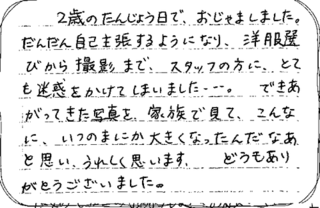 2歳のたんじょう日で、おじゃましました。
だんだん自己主張するようになり、洋服選
びから撮影まで、スタッフの方に、とて
も迷惑をかけてしまいました…。 できあ
がってきた写真を、家族で見て、こんな
に、いつのまにか大きくなったんだなあ
と思い、うれしく思います。 どうもあり
がとうございました。